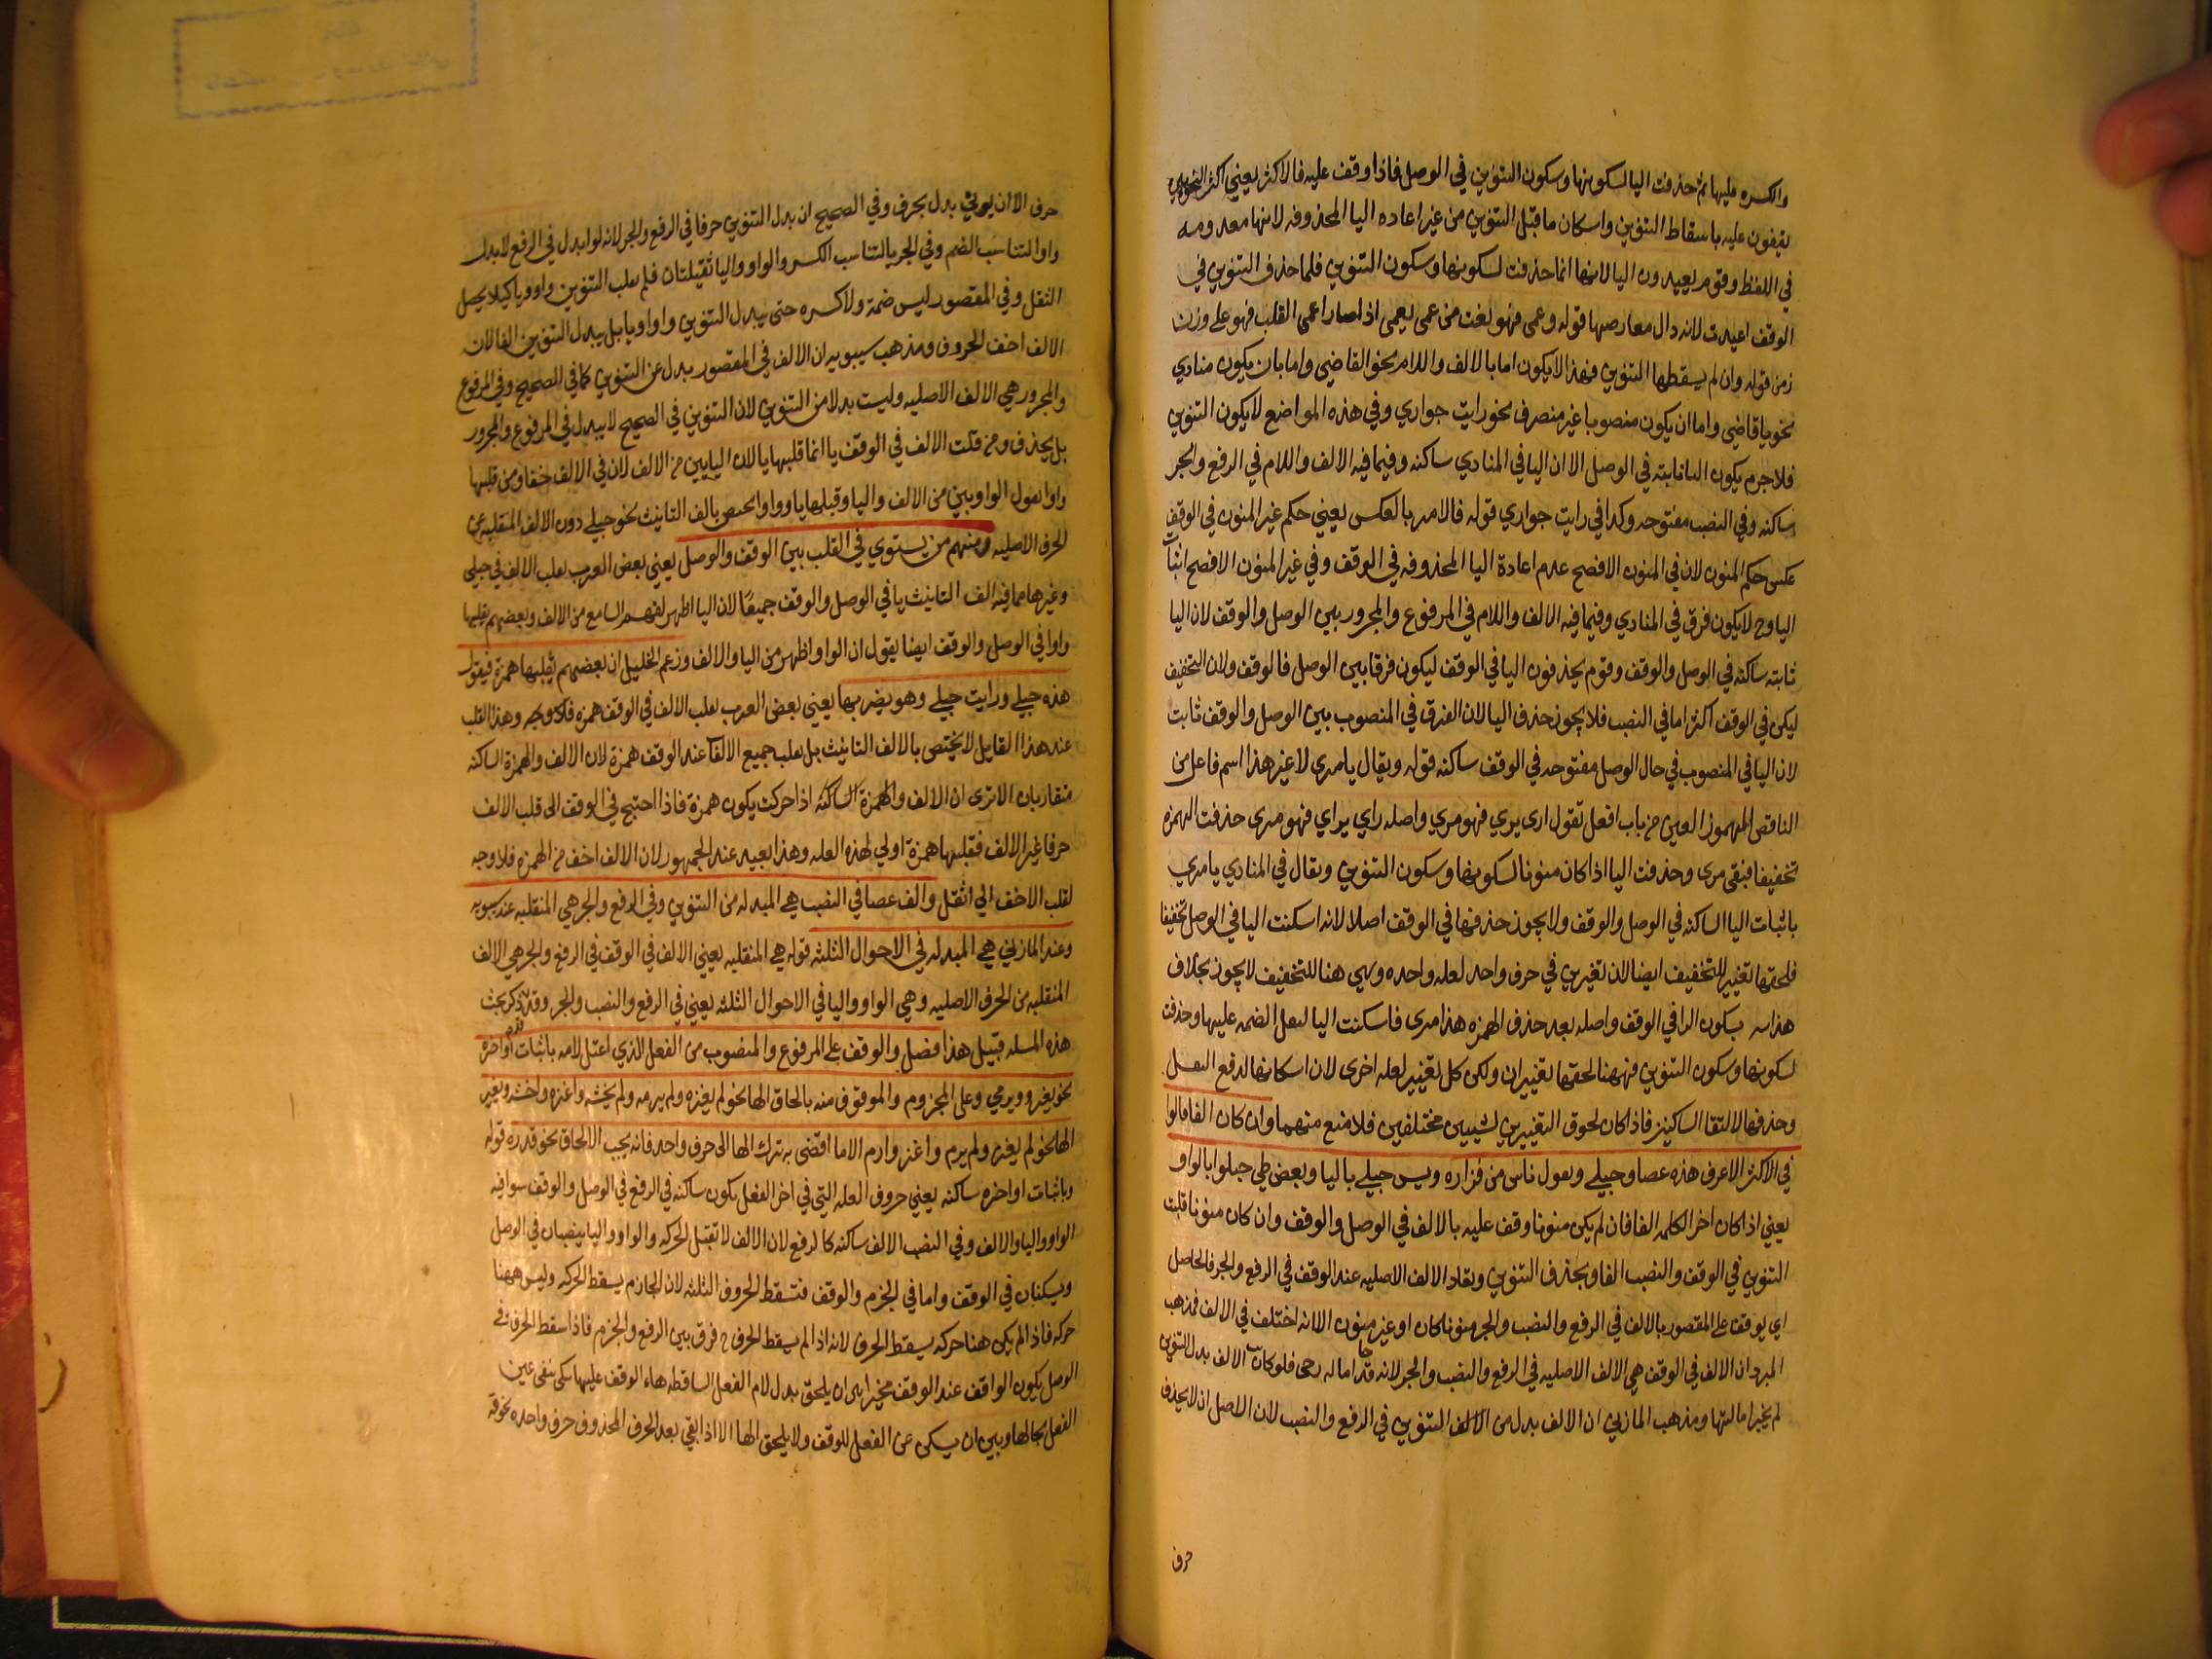 والكسره عليها ثم حذفت اليا لسكونها وسكون التنوين في الوصل فاذا وقف عليه فالاكثر يعني اكثر النحويين
يقفون عليه باسقاط التنوين واسكان ما قبل التنوين من غير اعاده اليا المحذوفه لانها معدومه
في اللفظ وقوم يعيدون اليا لانها انما حذفت لسكونها وسكون التنوين فلما حذف التنوين في
الوقف اعيدت لانه زال معارضها قوله وعمى فهو لغت من عمى يعمى اذا صار اعمى القلب فهو على وزن
زمن قوله وان لم يسقطها التنوين فهذا لا يكون اما بالالف واللام نحو القاضي واما بان يكون منادي
نحو يا قاضي واما ان يكون منصوبا غير منصرف نحو رايت جواري وفي هذه المواضع لا يكون التنوين
فلا جرم يكون اليا ثابته في الوصل الا ان اليا في المنادي ساكنه وفيما فيه الالف واللام في الرفع والجر
ساكنه وفي النصب مفتوحه وكذا في رايت جواري قوله فالامر بالعكس يعني حكم غير المنون في الوقف
عكس حكم المنون لان في المنون الافصح عدم اعادة اليا المحذوفه في الوقف وفي غير المنون الافصح اثبات
اليا وح لا يكون فرق في المنادي وفيما فيه الالف واللام في المرفوع والمجرور بين الوصل والوقف لان اليا
ثابته ساكنه في الوصل والوقف وقوم يحذفون اليا في الوقف ليكون فرقا بين الوصل فالوقف ولان التخفيف
ليكن في الوقف اكثر اما في النصب فلا يجوز حذف اليا لان الفرق في المنصوب بين الوصل والوقف ثابت
لان اليا في المنصوب في حال الوصل مفتوحه في الوقف ساكنه قوله ويقال يا مري لا غير هذا اسم فاعل من
الناقص المهموز العين من باب افعل تقول ارى يري فهو مري واصله راي يراي فهو مرى حذفت الهمزه
تخفيفا فبقى مرى وحذفت اليا اذا كان منونا لسكونها وسكون التنوين ويقال في المنادي يا مري
باثبات اليا الساكنه في الوصل والوقف ولا يجوز حذفها في الوقف اصلا لانه اسكنت اليا في الوصل تخفيفا
فلحقها تغيير للتخفيف ايضا لان تغيرين في حرف واحد لعله واحده وهي هنا للتخفيف لا يجوز بخلاف
هذا مر بسكون الرا في الوقف واصله بعد حذف الهمزه هذا مرى فاسكنت اليا لثقل الضمه عليها وحذفت
لسكونها وسكون التنوين فههنا لحقها تغييران ولكن كل تغيير لعله اخرى لان اسكانها لدفع الثقل
وحذفها لالتقا الساكنين فاذا كان لحوق التغييرين لشيين مختلفين فلا منع منهما وان كان الفا قالوا
في الاكثر الاعرف هذه عصا وحبلى ويقول ناس من فزاره وقيس حبلي باليا وبعض طي حبلوا بالواو
يعني اذا كان اخر الكلمه الفا فان لم يكن منونا وقف عليه بالالف في الوصل والوقف وان كان منونا قلبت
التنوين في الوقف والنصب الفا ويحذف التنوين وتعاد الالف الاصليه عند الوقف في الرفع والجر فالحاصل
اي يوقف على المقصور بالالف في الرفع والنصب والجر منونا كان او غير منون الا انه اختلف في الالف فمذهب
المبرد ان الالف في الوقف هي الالف الاصليه في الرفع والنصب والجر لانه قد جا اماله رحى فلو كانت الالف بدل التنوين
لم يجز امالتها ومذهب المازني ان الالف بدل من الالف التنوين في الرفع والنصب لان الاصل ان لا يحذف
حرف
حرف الا ان يوتي بدل بحرف وفي الصحيح ان بدل التنوين حرفا في الرفع والجر لانه لو ابدل في الرفع لابدل
واوا لتناسب الضم وفي الجر يا لتناسب الكسر والواو واليا ثقيلتان فلم تقلب التنوين واوا ويا كيلا يحصل
الثقل وفي المقصور ليس ضمة ولا كسره حتى يبدل التنوين واوا ويا بل يبدل التنوين الفا لان
الالف اخف الحروف ومذهب سيبويه ان الالف في المقصور بدل عن التنوين كما في الصحيح وفي المرفوع
والمجرور هي الالف الاصليه وليست بدلا من التنوين لان التنوين في الصحيح لا يبدل في المرفوع والمجرور
بل يحذف ومن قلب الالف في الوقف يا انما قلبها يا لان اليا ابين من الالف لان في الالف خفا ومن قلبها
واوا يقول الواو ابين من الالف واليا وقبلها يا وواوا يختص بالف التانيث نحو حبلى دون الالف المنقلبه عن
الحرف الاصليه ومنهم من يستوي في القلب بين الوقف والوصل يعني بعض العرب يقلب الالف في حبلى
وغيرها مما فيه الف التانيث يا في الوصل والوقف جميعا لان اليا اظهر لفهم السامع من الالف وبعضهم يقلبها
واوا في الوصل والوقف ايضا يقول ان الواو اظهر من اليا والالف وزعم الخليل ان بعضهم يقلبها همزة فيقول
هذه حبلى ورايت حبلى وهو يضربها يعني بعض العرب يقلب الالف في الوقف همزه فلا وجه وهذا القلب
عند هذا القايل لا يختص بالالف التانيث بل يقلب جميع الالفا عند الوقف همزة لان الالف والهمزة الساكنه
متقاربان الا ترى ان الالف والهمزة الساكنه اذا حركت يكون همزة فاذا احتيج في الوقف الى قلب الالف
حرفا غير الالف فقلبها همزة اولي لهذه العله وهذا بعيد عند الجمهور لان الالف اخف من الهمزه فلا وجه
لقلب الاخف الى اثقل والف عصا في النصب هي المبدله من التنوين وفي الرفع والجر هي المنقلبه عند سيبويه
وعند المازني هي المبدله في الاحوال الثلثه قوله هي المنقلبه يعني الالف في الوقف في الرفع والجر هي الالف
المنقلبه من الحرف الاصليه وهي الواو واليا في الاحوال الثلثه يعني في الرفع والنصب والجر وقد ذكر بحث
هذه المسله قبيل هذا فصل والوقف على المرفوع والمنصوب من الفعل الذي اعتل لامه باثبات اواخره
نحو يغزو ويرمي وعلى المجزوم والموقوف منه بالحاق الها نحو لم يغزه ولم يرمه ولم يخشه واغزه واخشه وبغير
الها نحو لم يغز ولم يرم واغز وارم الا ما افضى به ترك الها الى حرف واحد فانه يجب الالحاق نحو قه ره قوله
وباثبات اواخره ساكنه يعني حروف العله التي في اخر الفعل تكون ساكنه في الرفع في الوصل والوقف سوا فيه
الواو واليا والالف وفي النصب الالف ساكنه كالرفع لان الالف لا تقبل الحركه والواو واليا ينصبان في الوصل
ويسكنان في الوقف واما في الجزم والوقف فتسقط الحروف الثلثه لان الجازم يسقط الحركه وليس ههنا
حركه فاذا لم يكن هنا حركه يسقط الحرف لانه اذا لم يسقط الحرف ح فرق بين الرفع والجزم فاذا سقط الحرف في
الوصل يكون الواقف عند الوقف مخيرا بين ان يلحق بدل لام الفعل الساقطه هاء الوقف عليها لكي تبقى عين
الفعل بحالها وبين ان يسكن عن الفعل للوقف ولا يلحق الها الا اذا بقي بعد الحرف المحذوف حرف واحده نحو قه